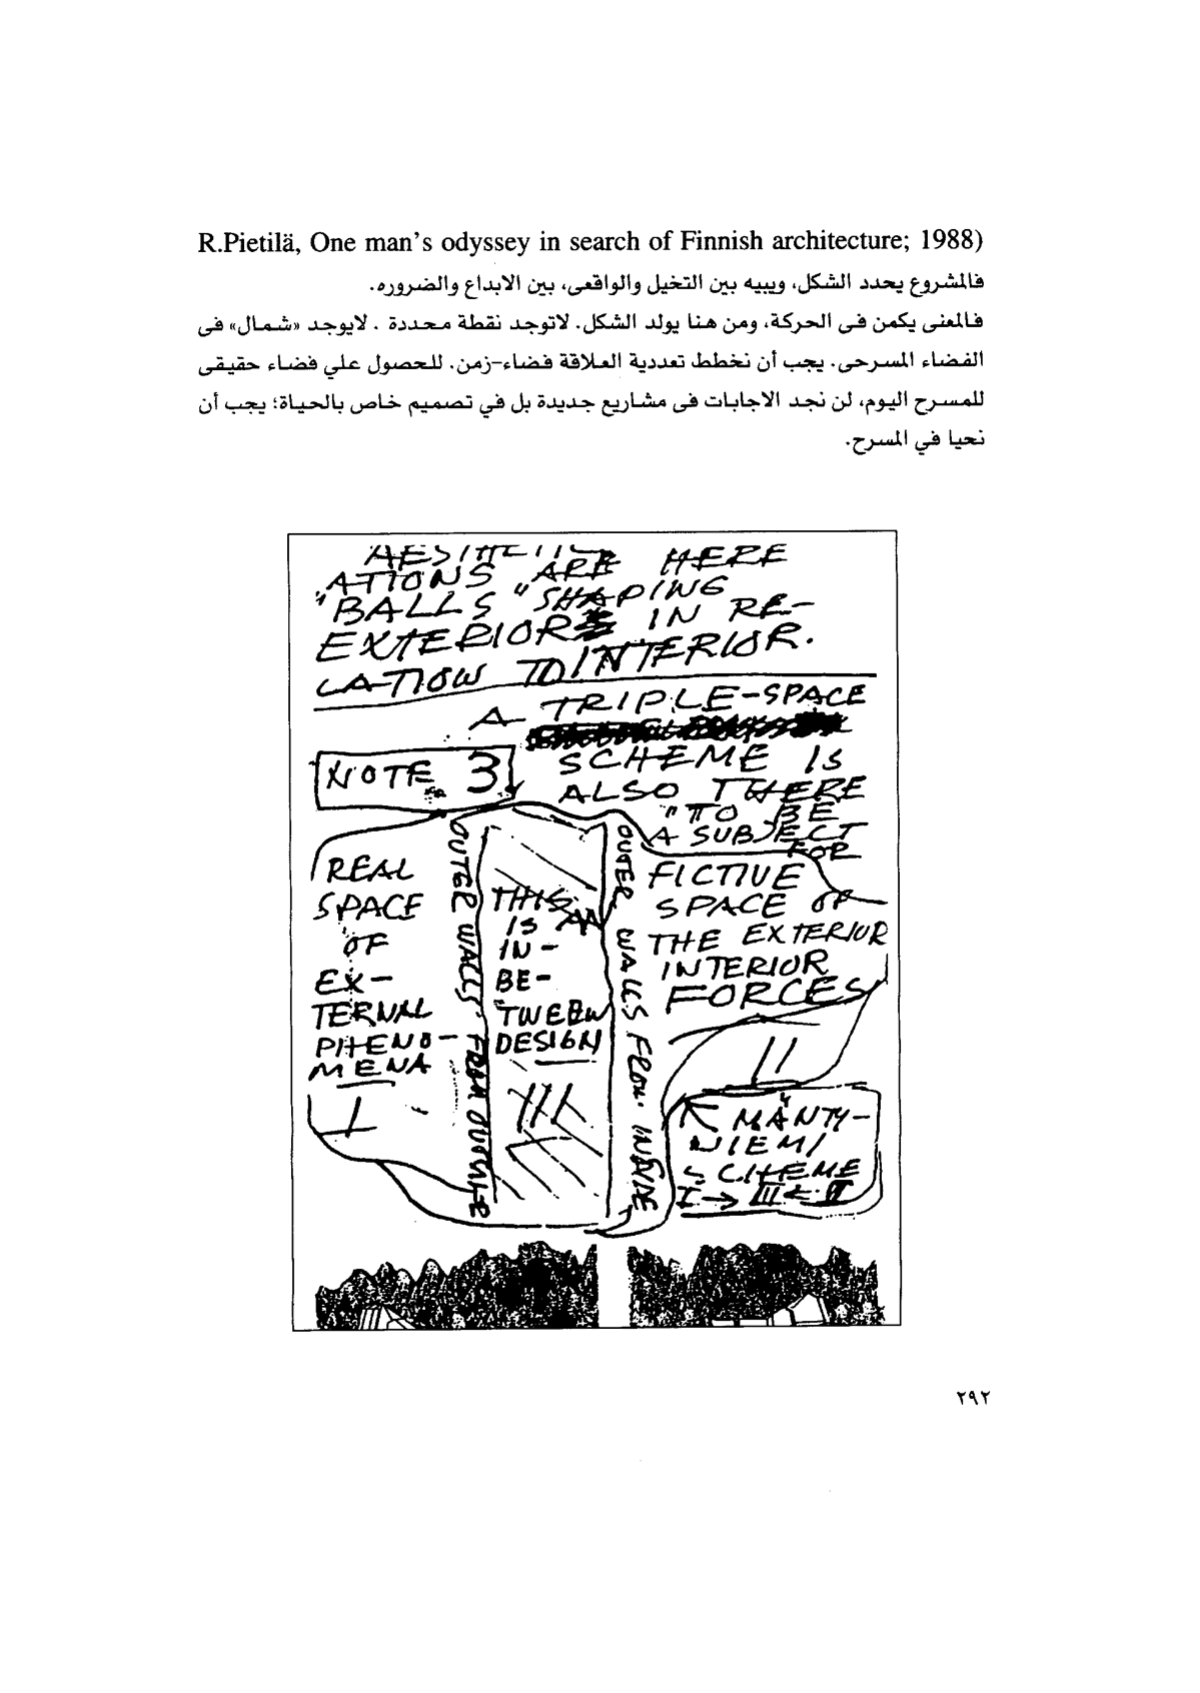 R.Pietilä, One man's odyssey in search of Finnish architecture; 1988)
فالمشروع يحدد الشكل، ويبيه بين التخيل والواقعى، بين الابداع والضروره.
فالمعنى يكمن فى الحركة، ومن هنا يولد الشكل. لاتوجد نقطة محددة . لايوجد «شمال» فى
الفضاء المسرحى. يجب أن نخطط تعددية العلاقة فضاء-زمن. للحصول علي فضاء حقيقى
للمسرح اليوم، لن نجد الاجابات فى مشاريع جديدة بل في تصميم خاص بالحياة؛ يجب أن
نحيا في المسرح.
ATIONS ARE HERE
"BALLS" SHAPING
EXTERIOR IN RE-
LATION TO INTERIOR.
A TRIPLE-SPACE
SCHEME IS
ALSO THERE
"TO BE
A SUBJECT
FOR
NOTE 3
REAL
SPACE
OF
EX-
TERNAL
PHENO-
MENA
I
OUTER WALLS FROM OUTSIDE
THIS
IS AN
IN-
BE-
TWEEN
DESIGN
III
OUTER WALLS FROM INSIDE
FICTIVE
SPACE OF
THE EXTERIOR
INTERIOR
FORCES
II
MÄNTY-
NIEMI
SCHEME
I → III ← II
٢٩٢